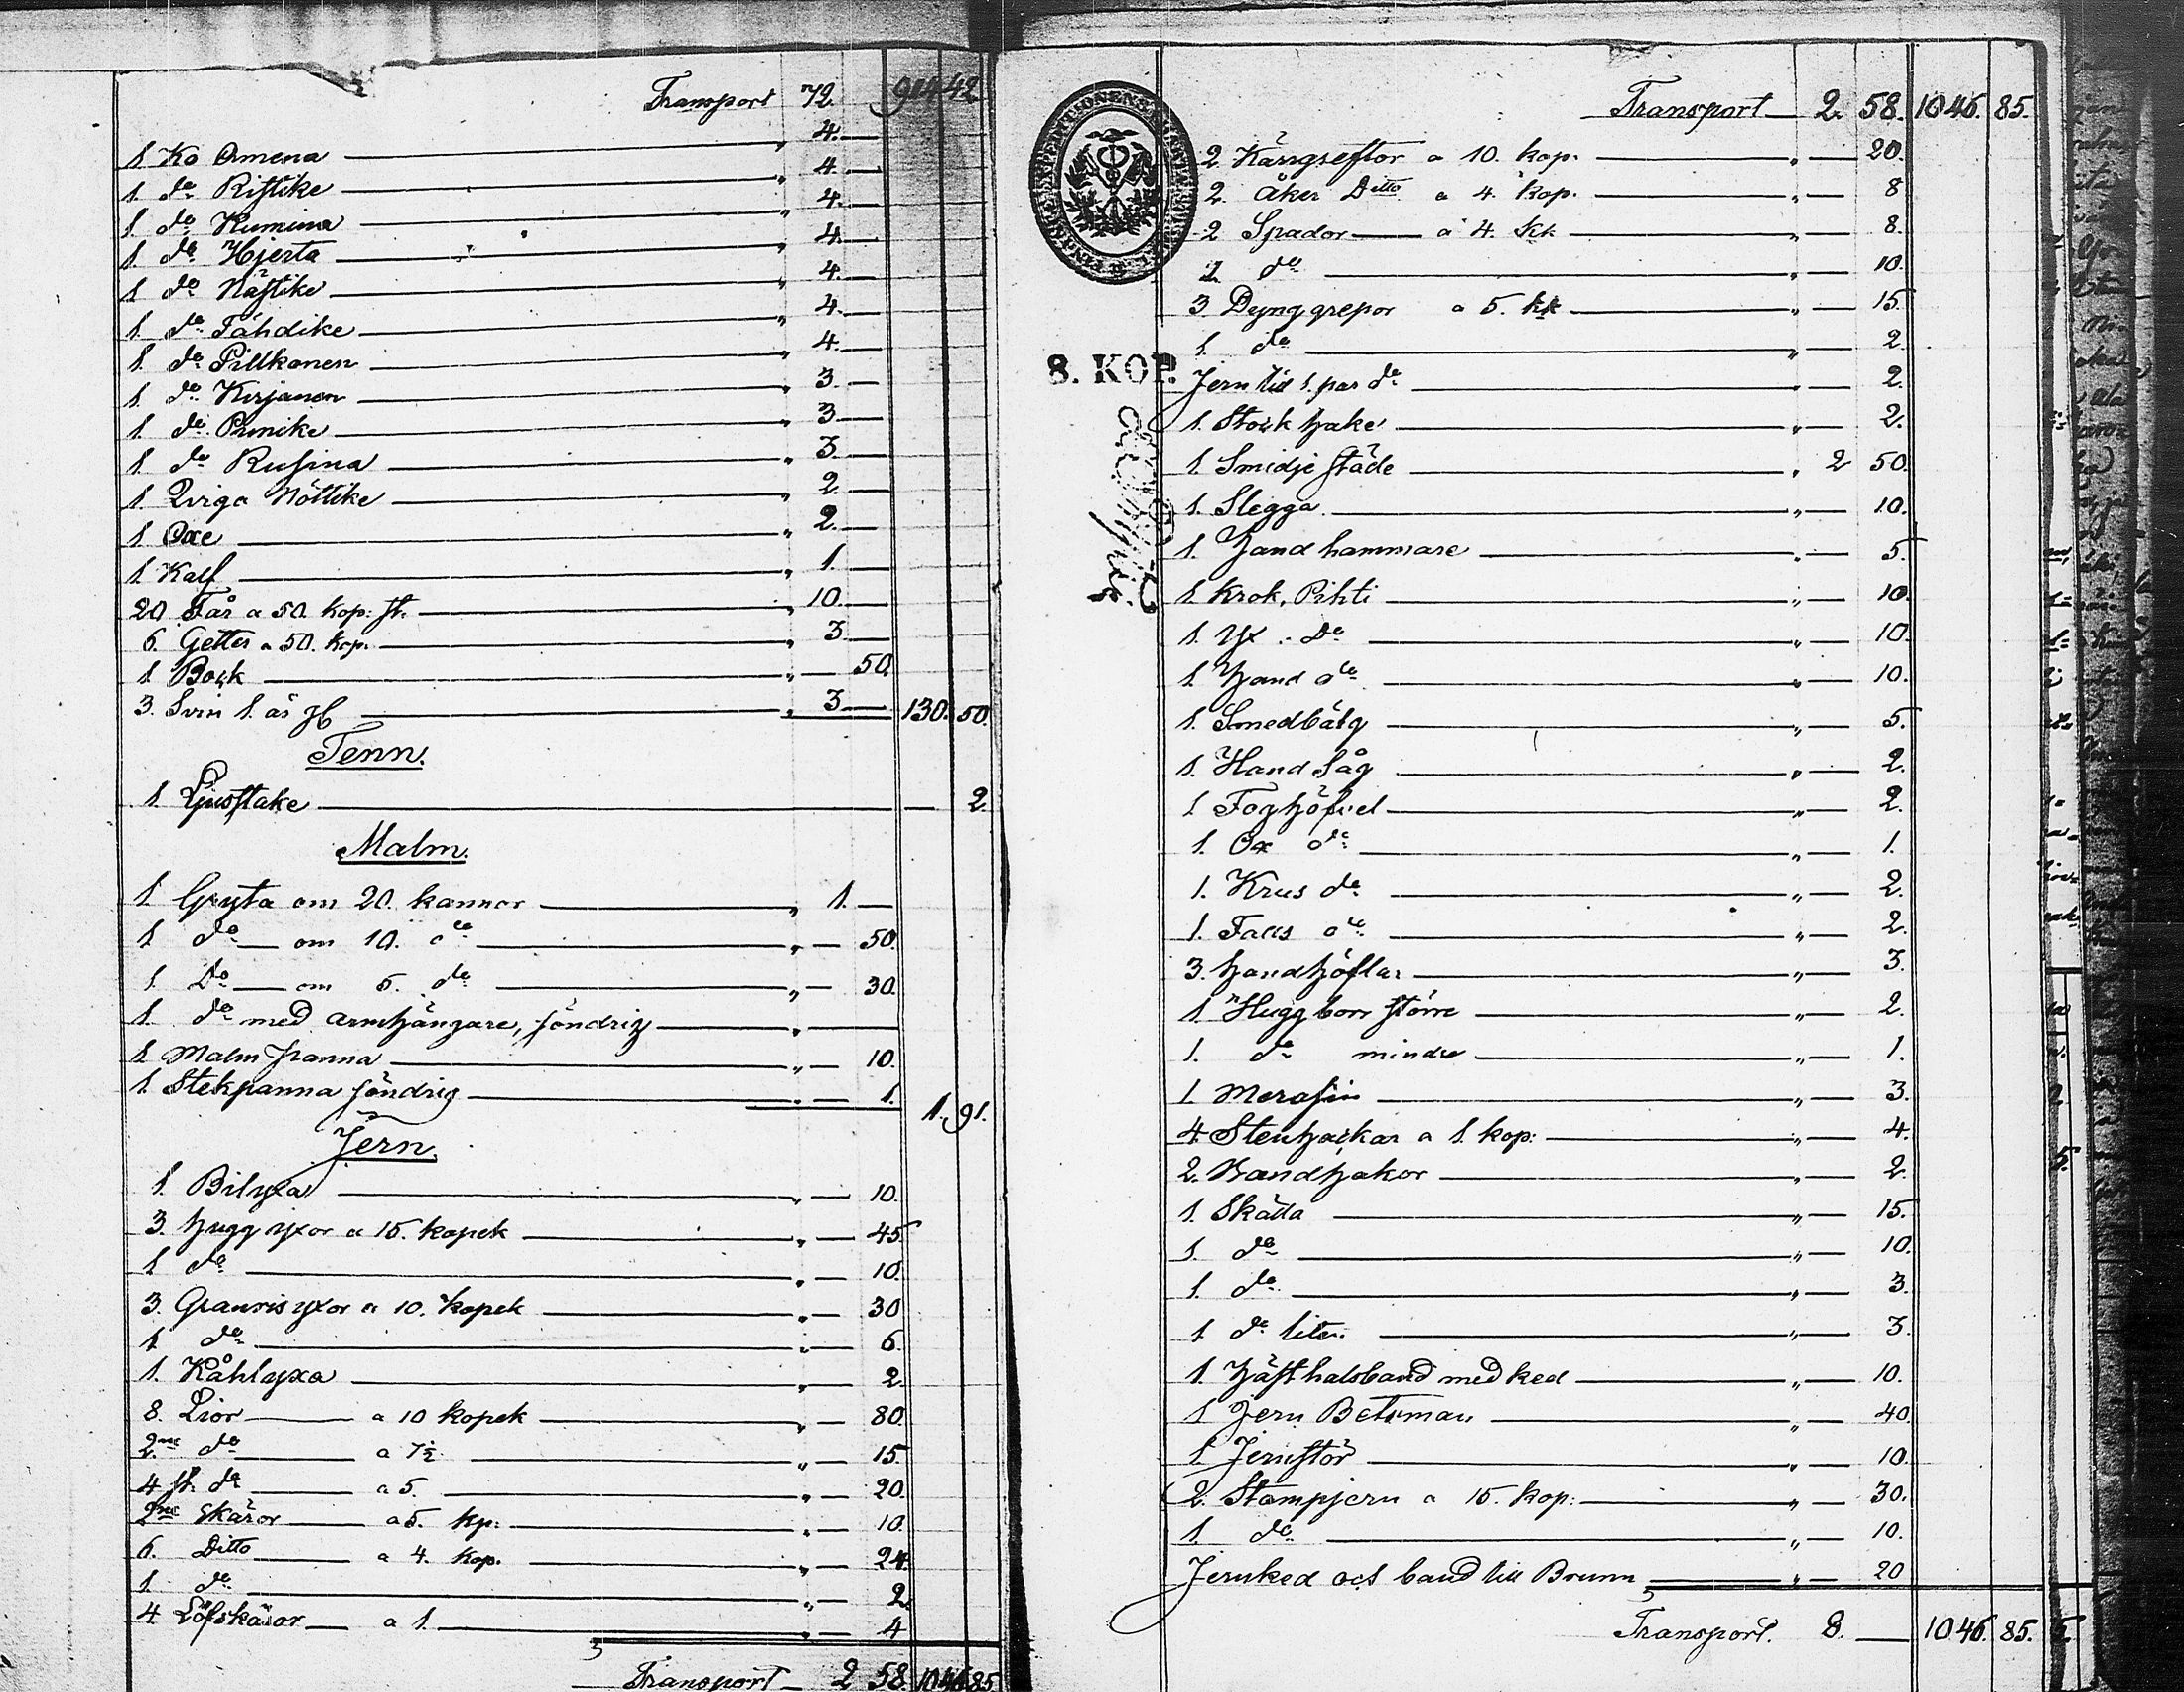 Transport 72. 914 42
1 Ko Omena " 4.
1. do Ristike " 4.
1. do Kumina " 4.
1. do Hjerta " 4.
1 do Nästike " 4.
1. do Tähdike " 4.
1. do Pillkonen " 4.
1. do Kirjanen " 3
1. do Punike " 3
1. do Rusina " 3.
1 Qviga Nöttike " 2.
1 Oxe " 2.
1 Kalf " 1.
20 Får a 50. kop. st. " 10.
6. Getter a 50. kop. " 3
1 Bock " 50.
3. Svin 1. års " 3 130. 50.
Tenn.
1. Ljusstake 2.
Malm.
1. Gryta om 20. kannor " 1.
1 do om 10. do " 50.
1. Do om 5. do " 30.
1. do med armhängare, söndrig "
1 Malm panna " 10.
1. Stekpanna söndrig " 1. 1. 91.
Jern.
1. Bilyxa " 10.
3. huggyxor a 15. kopek " 45.
1 do " 10.
3. Granrisyxor a 10. kopek " 30
1 do " 6.
1. Kåhlyxa " 2.
8. Lior a 10 kopek " 80.
2ne do a 7½ " 15.
4 st. do a 5. " 20.
2ne Skäror a 5. kp. " 10.
6. Ditto a 4. kop. " 24.
1. do " 2.
4 Löfskäror a 1. " 4
Transport 2 58. 1046 85
Transport 2. 58. 1046. 85.
2. Kärrgreftor a 10. kop. " 20.
2. Åker Ditto a 4. kop. " 8
2 Spador a 4. kk " 8.
2. do " 10.
3 Dynggrepor a 5. kk " 15.
1. do " 2.
8. KOP.
Jern till 1. par do " 2.
1. Stockhake " 2.
1. Smidje städe " 2 50.
1. Slegga " 10.
1. Handhammare " 5.
1. Krok, Pihti " 10.
1. Yx Do " 10.
1. Hand do " 10.
1. Smedbälg " 5.
1. Hand såg " 2.
1 Foghöfvel " 2.
1. Ox do " 1.
1. Krus do " 2.
1. Falls do " 2.
3. handhöflar " 3.
1 Huggborr större " 2.
1. do mindre " 1.
1. Merasin " 3.
4. Stenhackar a 1. kop. " 4.
2. Handhakor " 2.
1. Skålla " 15.
1. do " 10.
1. do " 3.
1 do liten " 3.
1. Hästhalsband med ked " 10.
1 Jern Betsman " 40
1. Jernstör " 10.
2. Stampjern a 15. kop. " 30.
1. do " 10.
Jernked och band till Brunn " 20
Transport. 8. 1046. 85.